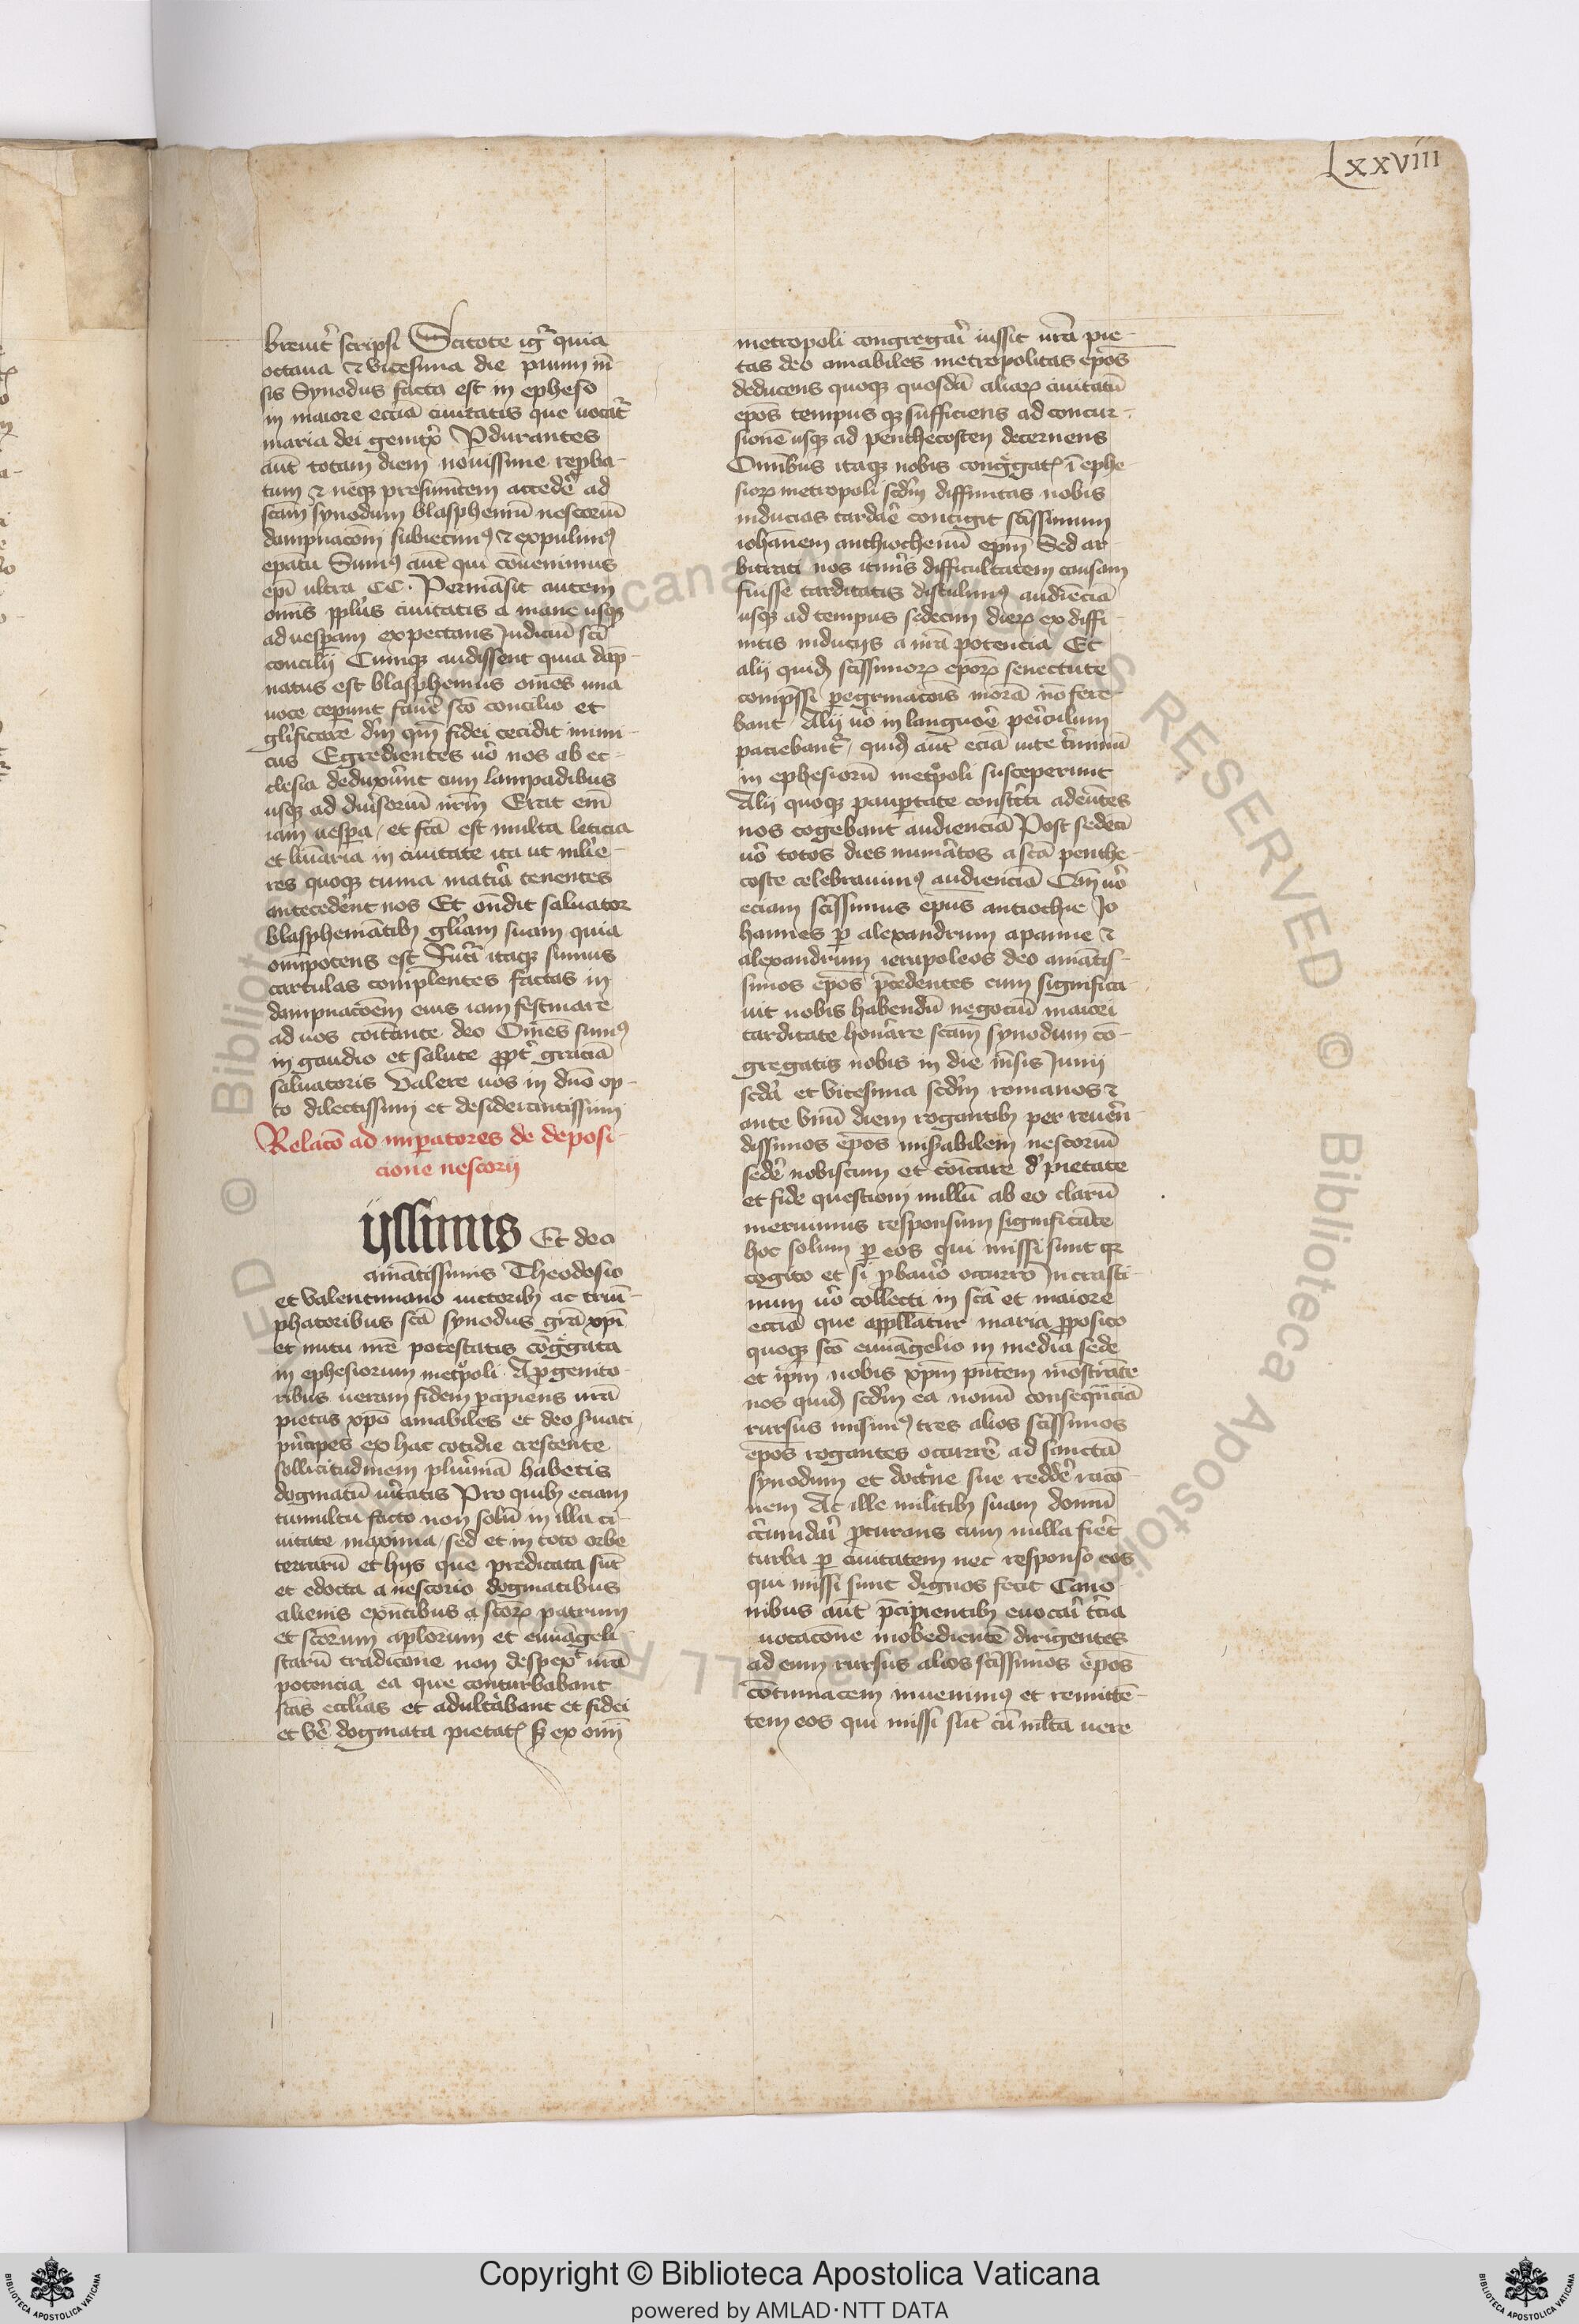 Lxxviii
breuit̉ scripsi Scitote ig̉ quia
octaua ⁊ vicesima die pauni m̄-
sis Synodus facta est in epheso
in maiore ecc̄ia ciuitatis que uocat̉
maria dei genit̉x Pdurantes
aūt totam diem nouissime rep̄ba-
tum ⁊ neq̨ presumētem accedē ad
sc̄am synodum blasphemū nestoriū
dampnac̄oni subiecimꝰ ⁊ expulimꝰ
ep̄atu Sumꝰ aūt qui cōuenimus
ep̄i ultra CC. Permāsit autem
om̄is pp̄lus ciuitatis a mane usq̨
ad uesp̄am expectans Iudiciū sc̄i
concilij Cumq̨ audissent quia dāp-
natus est blasphemus om̄es una
uoce ceperunt fauē sc̄o concilio et
gl̄ificare dn̄m qm̄ fidei cecidit inimi-
cus Egredientes uō nos ab ec-
clesia deduxer̄unt cum lampadibus
usq̨ ad diu̓soriū nr̄m Erat em̄
iam uesp̄a / et fc̄a est multa leticia
et lūīaria in ciuitate ita ut mlīe-
res quoq̨ tima mat̉ia tenentes
antecedēnt nos Et on̄dit saluator
blasphemātib̨ glīam suam quia
om̄ipotens est Fut̉i itaq̨ sumus
cartulas complentes factas in
dampnac̄oēm eius iam festinare
ad uos coītante deo Om̄es sumꝰ
in gaudio et salute pp̄t̉ graciā
saluatoris Valere uos in dn̄o op-
to dilectissimi et desiderantissimi
Relac̄o ad imp̄atores de deposi-
cione nestorij
ijssimis Et deo
amātissimis Theodosio
et Valentiniano uictorib̨ ac triū-
phatoribus sc̄a synodus gr̄a xp̄i
et nutu ur̄e potestatis cōg̉gata
in ephesiorum met̉poli A p̄genito-
ribus ueram fidem p̄cipiens ur̄a
pietas xp̄o amabiles et deo s̉uati
p̉ncipes ex hac cotidie crescente
sollicitudinem plur̉imā habetis
dogmatū ūitatis Pro quib̨ eciam
tumultu facto non solū in illa ci-
uitate maxima / sed et in toto orbe
terrarū et hijs que predicata sūt
et edocta a nestorio dogmatibus
alienis exn̄tibus a sc̄oꝝ patrum
et sc̄orum ap̄lorum et euuāgeli-
starū tradic̄one non despexit ur̄a
potencia ea que conturbabant
sc̄as eccl̄ias et adult̉abant et fidei
et ūē dogmata pietatꝭ sꝫ ex om̄i
metropoli congregar̉i iussit ur̄a pie-
tas deo amabiles metropolitas ep̄os
deducens quoq̨ quosdā aliaꝝ ciuitatū
ep̄os tempus q̨ sufficiens ad concur-
sionē usq̨ ad penthecosten decernens
Omībus itaq̨ nobis cong̉gatꝭ ī ephe-
sioꝝ metropoli scd̄m diffinitas nobis
inducias tardar̉e contigit sc̄issimum
iohānem anthiochenū ep̄m Sed ar-
bitrati nos itin̄is difficultatem causam
fuisse tarditatis distulimꝰ audienciā
usq̨ ad tempus sedecim dieꝝ ex diffi-
nitis inducijs a ur̄a potencia Et
alij quidꝫ sc̄issimoꝝ ep̄oꝝ senectute
comp̄ssi peregrinac̄ois morā nō fere-
bant / Alij uō in languor̉e per̉iculum
paciebant̉ / quidꝫ aūt eciā uite t̉minū
in ephesiorū met̉poli susceperunt
Alij quoq̨ paup̄tate constc̄ti adeūtes
nos cogebant audienciā Post sedeci
uō totos dies num̉atos a sc̄a penthe-
coste celebrauimꝰ audienciā Cum uō
eciam sc̄issimus ep̄us antiochie Io
hannes ꝑ alexandrum apamie ⁊
alexandrum ierapoleos deo amātis-
simos ep̄os p̄cedentes eum significa-
uit nobis habendū negociū maiori
tarditate honor̉are sc̄am synodum cō-
gregatis nobis in die m̄sis Iunij
scd̄a et vicesima scd̄m romanos ⁊
ante vnū diem rogantib̨ per reuer̉n-
dissimos ep̄os mis̉abilem nestoriū
sedē nobiscum et cōicare d̉ pietate
et fide questioni nullū ab eo clarū
meruimus responsum significāte
hoc solum ꝑ eos qui missi sunt qꝛ
cogito et si p̄bau̓o occurro In crasti-
num uō collecti in sc̄a et maiore
ecc̄ia que appellatur maria p̄posito
quoq̨ sc̄o euuāgelio in media sede
et ip̄m nobis xp̄m pn̄tem mōstrāte
nos quidꝫ scd̄m ea nouū conseq̄nciā
rursus misimꝰ tres alios sc̄issimos
ep̄os rogantes occurrē ad sanctā
synodum et doct̉ne sue reddē racō-
nem Ac ille militib̨ suam domū
c̉cumdar̉i p̄curans cum nulla fier̉et
turba ꝑ ciuitatem nec responso eos
qui missi sunt dignos fecit Cano-
nibus aūt p̄cipientib̨ euocar̉i t̉cia
uocac̄one inobedientē dirigentes
ad eum rursus alios sc̄issimos ep̄os
cōtumacem inuenimꝰ et remittē-
tem eos qui missi sūt cū ml̄ta uere
Copyright © Biblioteca Apostolica Vaticana
powered by AMLAD·NTT DATA